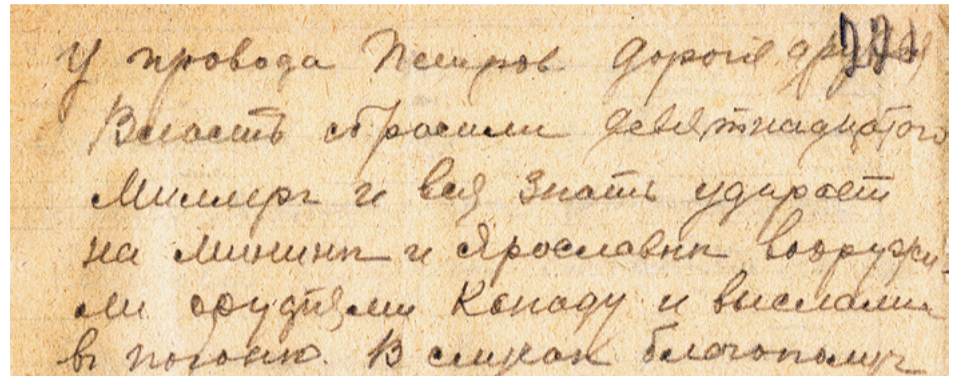 У провода Петров Дорогiе друзья
Власть сбросили девятнадцатого
Миллеръ и вся знать удирает
на Мининѣ и Ярославнѣ вооружи-
ли орудiями Канаду и выслали
въ погоню. В случаѣ благополуч-